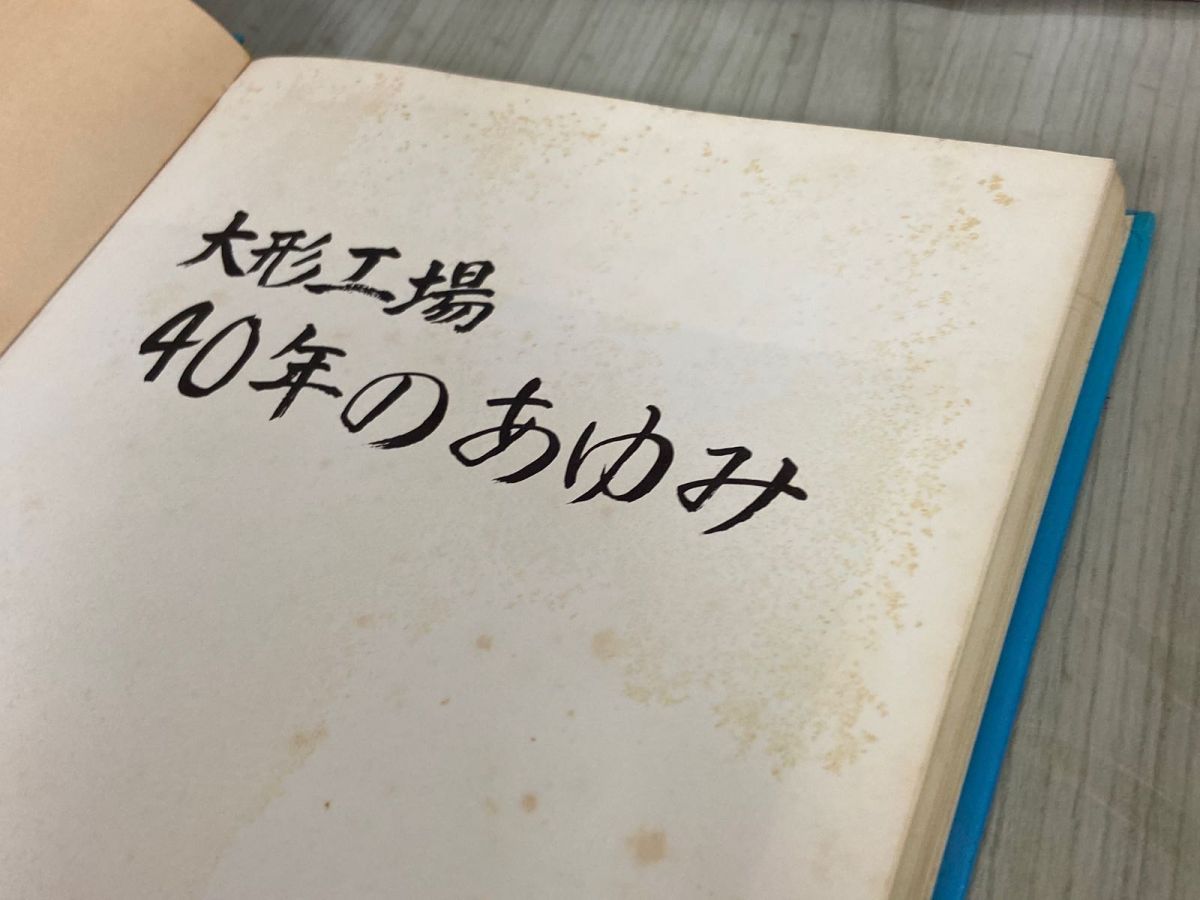 大形工場
40年のあゆみ